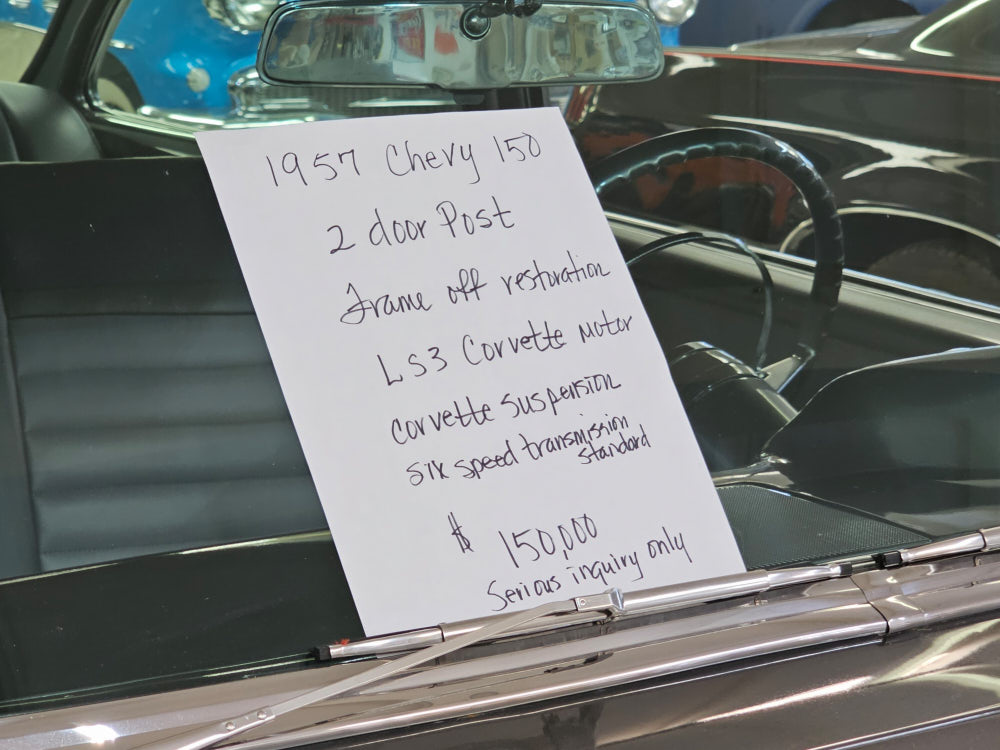 1957 Chevy 150
2 door Post
frame off restoration
LS3 Corvette motor
corvette suspension
six speed transmission
standard
$ 150,000
Serious inquiry only